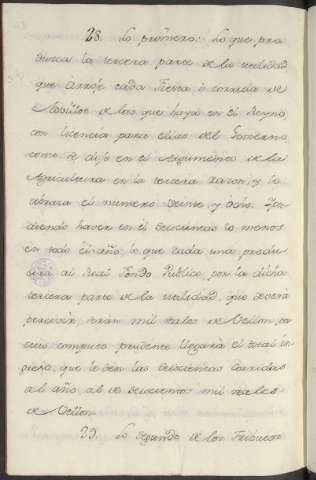 28. Lo primero: Lo que pro
duzca la tercera parte de la utilidad
que arroje cada Fiesta ò corrida de
Novillos de los que haya en el Reyno
con licencia para ellas del Govierno
como se dijo en el Argumento de la
Agricultura en la tercera razon, y lo
el numero veinte, y ocho.
haver en el Seiscientas lo menos
en todo el año, lo que cada una produ
cirá al Real Fondo Publico, por la dicha
tercera parte de la utilidad, que deverá
percivir, serán mil reales de Vellon, en
cuio computo prudente llegará el total in
greso, que le den las seiscientas corridas
al año, al de seiscientos mil reales
de Vellon.
29. Lo segundo de los Tribusos